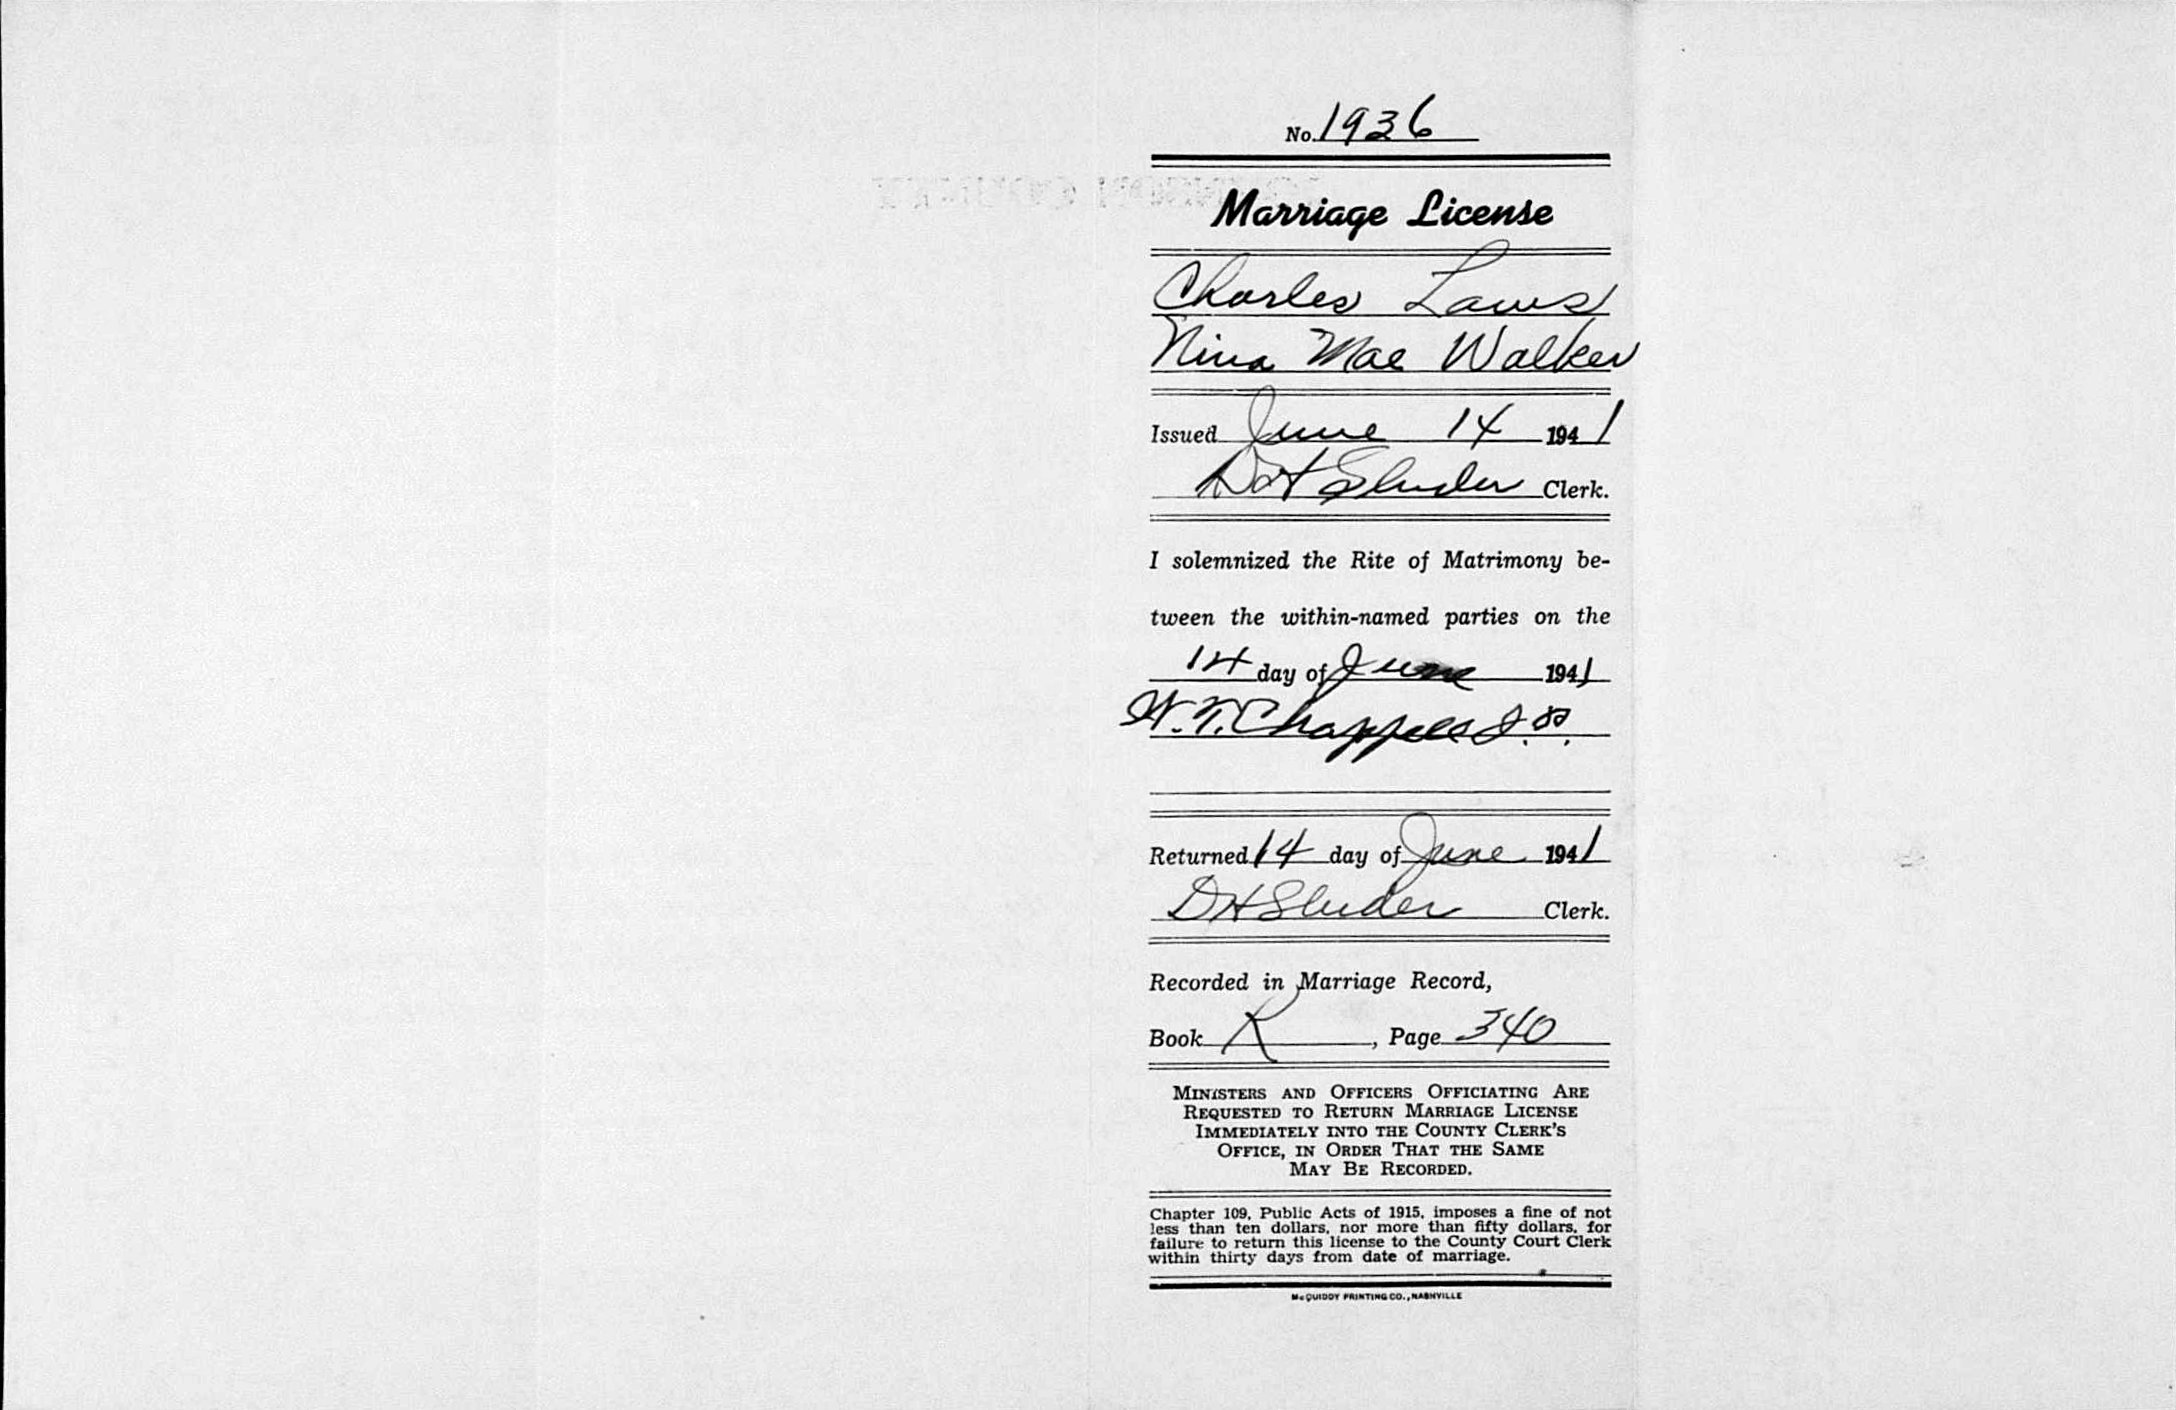 No. 1936
Marriage License
Charles Laws
Nina Mae Walker
Issued June 14 1941
D H Sluder Clerk.
I solemnized the Rite of Matrimony be-
tween the within-named parties on the
14 day of June 1941
W. T. Chappell J. P.
Returned 14 day of June 1941
D H Sluder Clerk.
Recorded in Marriage Record,
Book K, Page 340
MINISTERS AND OFFICERS OFFICIATING ARE
REQUESTED TO RETURN MARRIAGE LICENSE
IMMEDIATELY INTO THE COUNTY CLERK'S
OFFICE, IN ORDER THAT THE SAME
MAY BE RECORDED.
Chapter 109, Public Acts of 1915, imposes a fine of not
less than ten dollars, nor more than fifty dollars, for
failure to return this license to the County Court Clerk
within thirty days from date of marriage.
McQUIDDY PRINTING CO., NASHVILLE